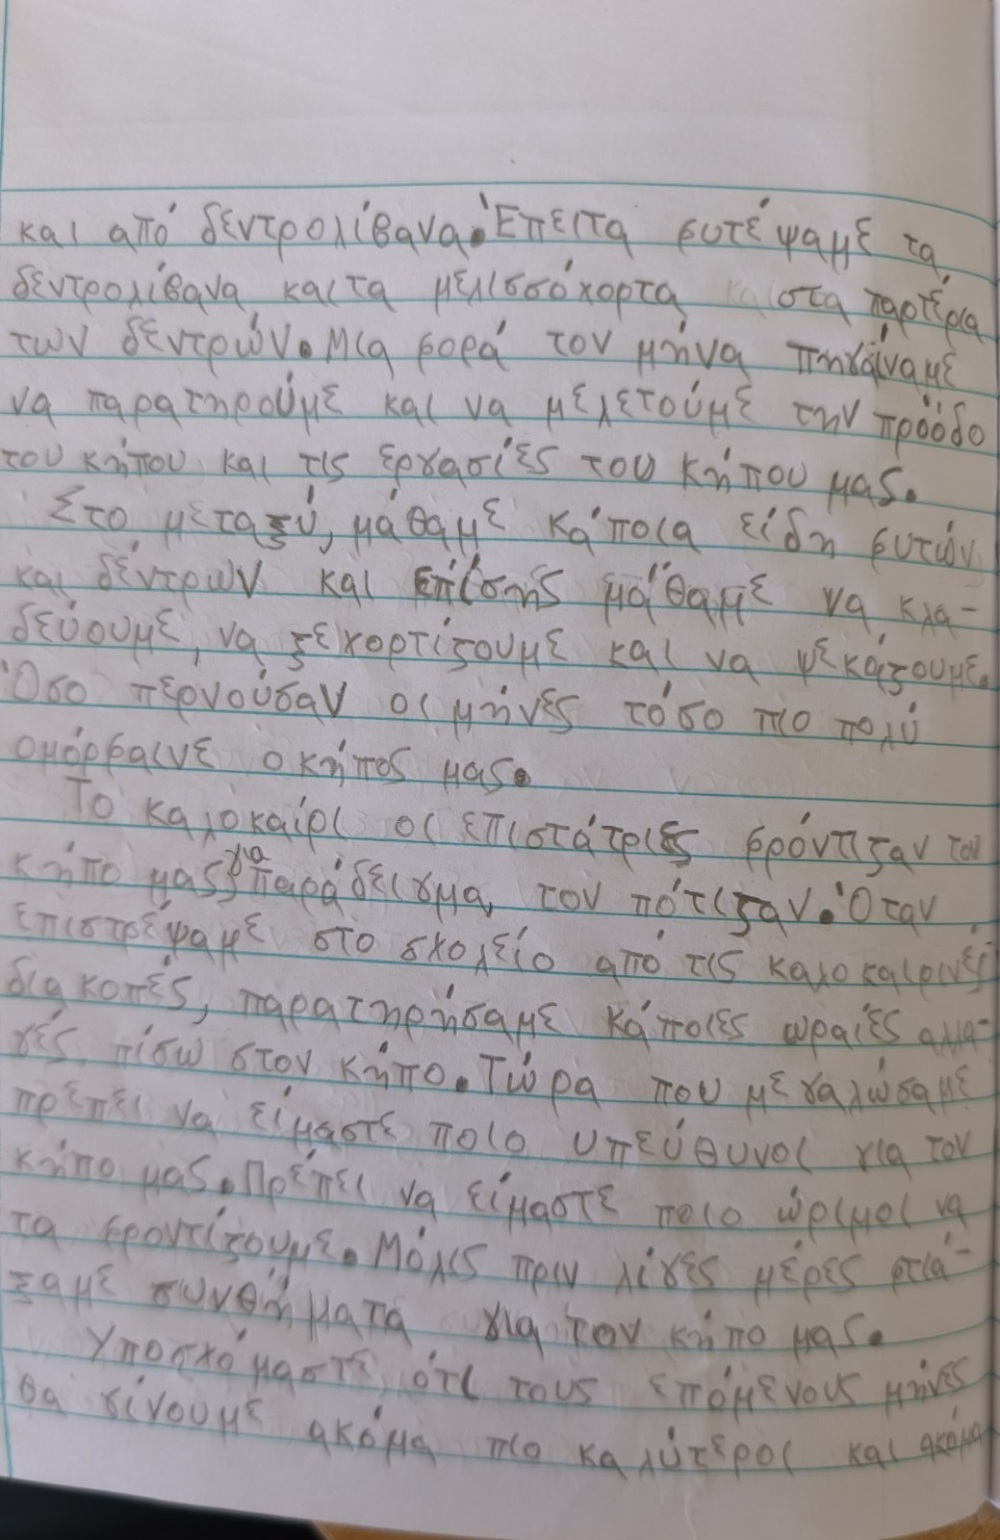 και από δεντρολίβανα. Έπειτα φυτέψαμε τα
δεντρολίβανα και τα μελισσόχορτα και στα παρτέρια
των δεντρών. Μια φορά τον μήνα πηγαίναμε
να παρατηρούμε και να μελετούμε την πρόοδο
του κήπου και τις εργασίες του κήπου μας.
Στο μεταξύ, μάθαμε κάποια είδη φυτών
και δέντρων και επίσης μάθαμε να κλα-
δεύουμε, να ξεχορτίζουμε και να ψεκάζουμε.
Όσο περνούσαν οι μήνες τόσο πιο πολύ
ομόρφαινε ο κήπος μας.
Το καλοκαίρι οι επιστάτριες φρόντιζαν τον
κήπο μας για παράδειγμα, τον πότιζαν. Όταν
επιστρέψαμε στο σχολείο από τις καλοκαιρινές
διακοπές, παρατηρήσαμε κάποιες ωραίες αλλα-
γές πίσω στον κήπο. Τώρα που μεγαλώσαμε
πρέπει να είμαστε ποιο υπεύθυνοι για τον
κήπο μας. Πρέπει να είμαστε ποιο ώριμοι να
τα φροντίζουμε. Μόλις πριν λίγες μέρες φτιά-
ξαμε συνθήματα για τον κήπο μας.
Υποσχόμαστε ότι τους επόμενους μήνες
θα γίνουμε ακόμα πιο καλύτεροι και ακόμα